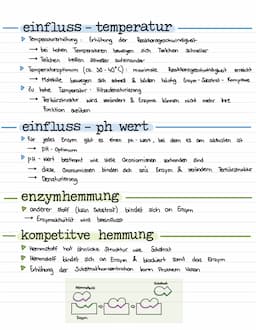 einfluss - temperatur
▷ Temperaturerhöhung: Erhöhung der Reaktionsgeschwindigkeit
→ bei hohen Temperaturen bewegen sich Teilchen schneller
→ Teilchen treffen schneller aufeinander
▷ Temperaturoptimum (ca. 30-40°C): maximale Reaktionsgeschwindigkeit erreicht
→ Moleküle bewegen sich schnell & bilden häufig Enzym-Substrat-Komplexe
▷ Zu hohe Temperatur: Hitzedenaturierung
→ Tertiärstruktur wird verändert & Enzyme können nicht mehr ihre
Funktion ausüben
einfluss - ph wert
▷ für jedes Enzym gibt es einen ph-wert, bei dem es am aktivsten ist
→ pH-Optimum
▷ pH-wert bestimmt wie viele Oxoniumionen vorhanden sind
→ diese Oxoniumionen binden sich ans Enzym & verändern Tertiärstruktur
→ Denaturierung
enzymhemmung
▷ anderer Stoff (kein Substrat) bindet sich an Enzym
→ Enzymaktivität wird beeinflusst
kompetitve hemmung
▷ Hemmstoff hat ähnliche Struktur wie Substrat
▷ Hemmstoff bindet sich an Enzym & blockiert somit das Enzym
▷ Erhöhung der Substratkonzentration kann Prozess lösen
Hemmstoff
Substrat
Enzym